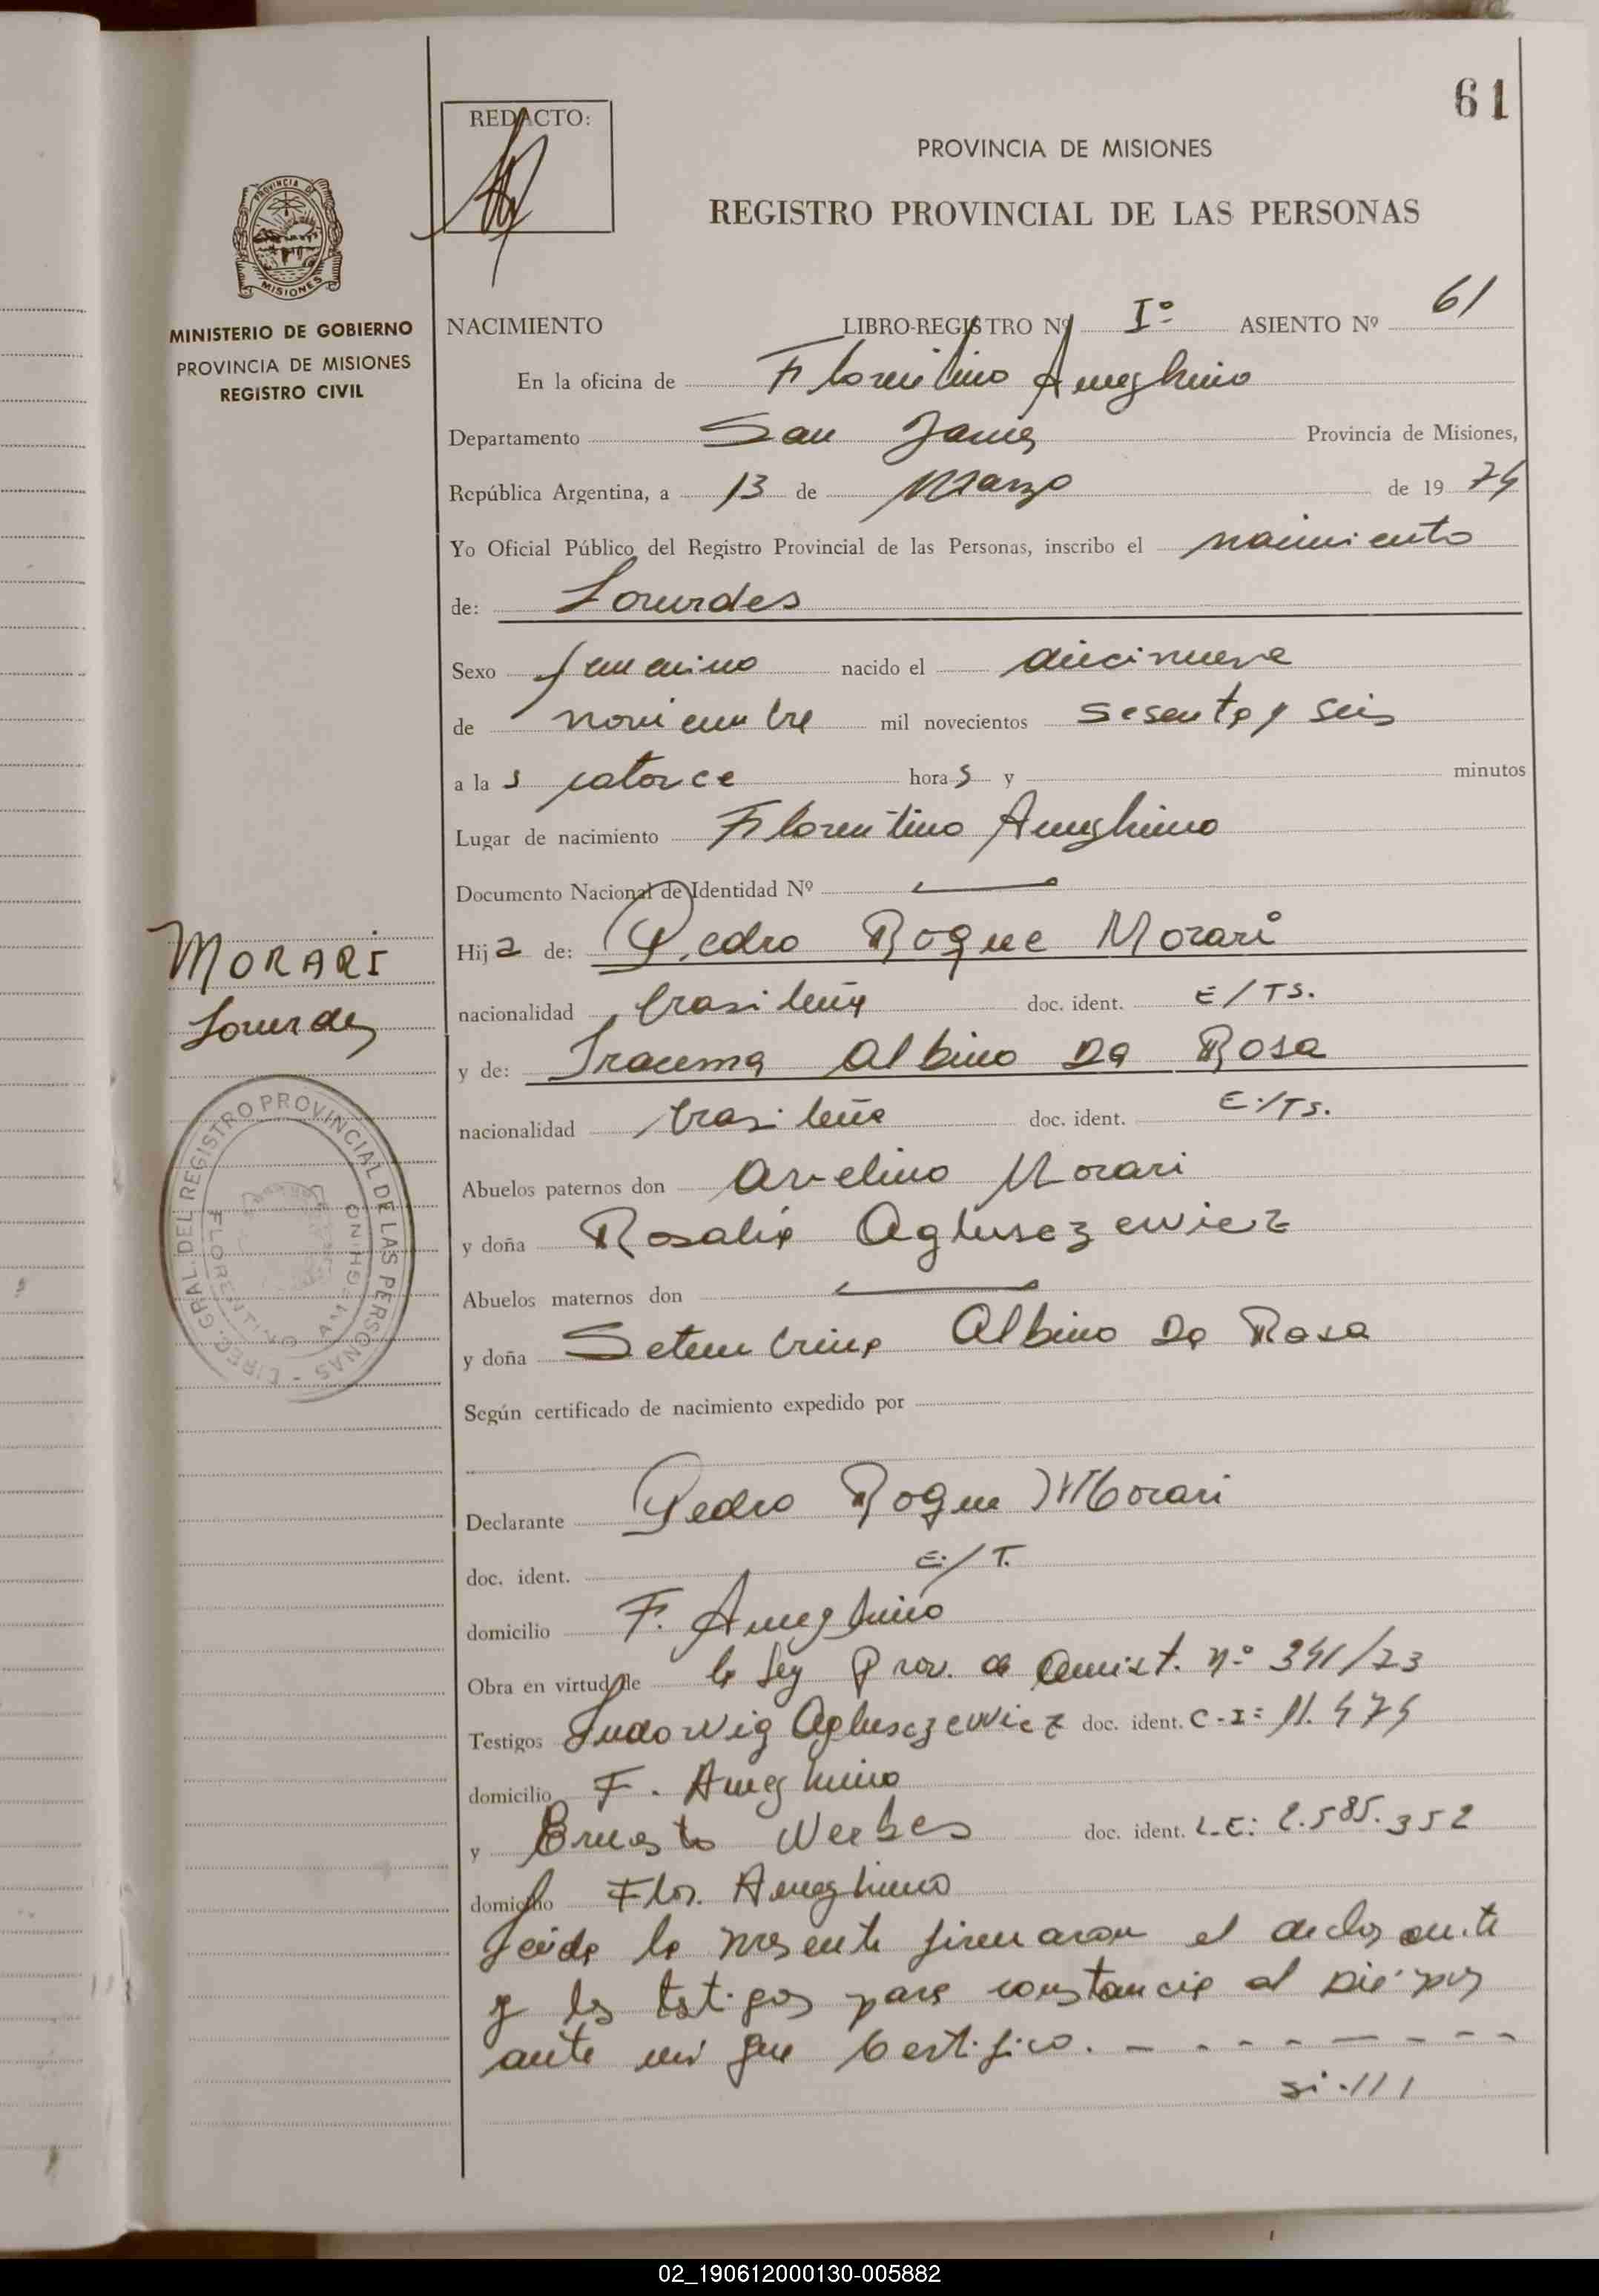 61
REDACTO:
PROVINCIA DE MISIONES
REGISTRO PROVINCIAL DE LAS PERSONAS
PROVINCIA DE
MISIONES
MINISTERIO DE GOBIERNO
PROVINCIA DE MISIONES
REGISTRO CIVIL
NACIMIENTO LIBRO-REGISTRO Nº Iº ASIENTO Nº 61
En la oficina de Florentino Ameghino
Departamento San Javier Provincia de Misiones,
República Argentina, a 13 de Marzo de 19 74
Yo Oficial Público del Registro Provincial de las Personas, inscribo el nacimiento
de: Lourdes
Sexo femenino nacido el diecinueve
de noviembre mil novecientos sesenta y seis
a la s catorce hora s y minutos
Lugar de nacimiento Florentino Ameghino
Documento Nacional de Identidad Nº
Hij a de: Pedro Roque Morari
nacionalidad brasileña doc. ident. E/TS.
y de: Iracema Albino Da Rosa
nacionalidad brasileña doc. ident. E:/TS.
MORARI
Lourdes
DIREC. GRAL. DEL REGISTRO PROVINCIAL DE LAS PERSONAS -
FLORENTINO AMEGHINO
Abuelos paternos don Avelino Morari
y doña Rosalia Aglusczewicz
Abuelos maternos don
y doña Setembrina Albino Da Rosa
Según certificado de nacimiento expedido por
Declarante Pedro Roque Morari
doc. ident. E:/T.
domicilio F. Ameghino
Obra en virtud de la Ley Prov. de Amist. nº 341/73
Testigos Ludowig Aglusczewicz doc. ident. C-I: 11.474
domicilio F. Ameghino
y Ernesto doc. ident. L-E: 2.585.352
domicilio Flor. Ameghino
Leida la presente firmaron el declarante
y los testigos para constancia al pie por
ante mi que Certifico. - - - - - - - -
si-///
02_190612000130-005882